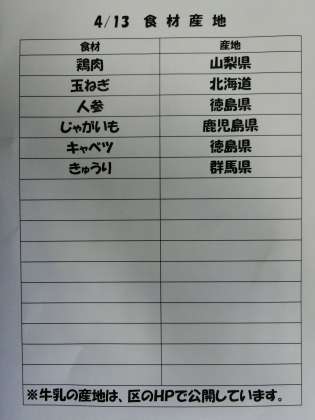 4/13 食材産地
食材 産地
鶏肉 山梨県
玉ねぎ 北海道
人参 徳島県
じゃがいも 鹿児島県
キャベツ 徳島県
きゅうり 群馬県
※牛乳の産地は、区のHPで公開しています。